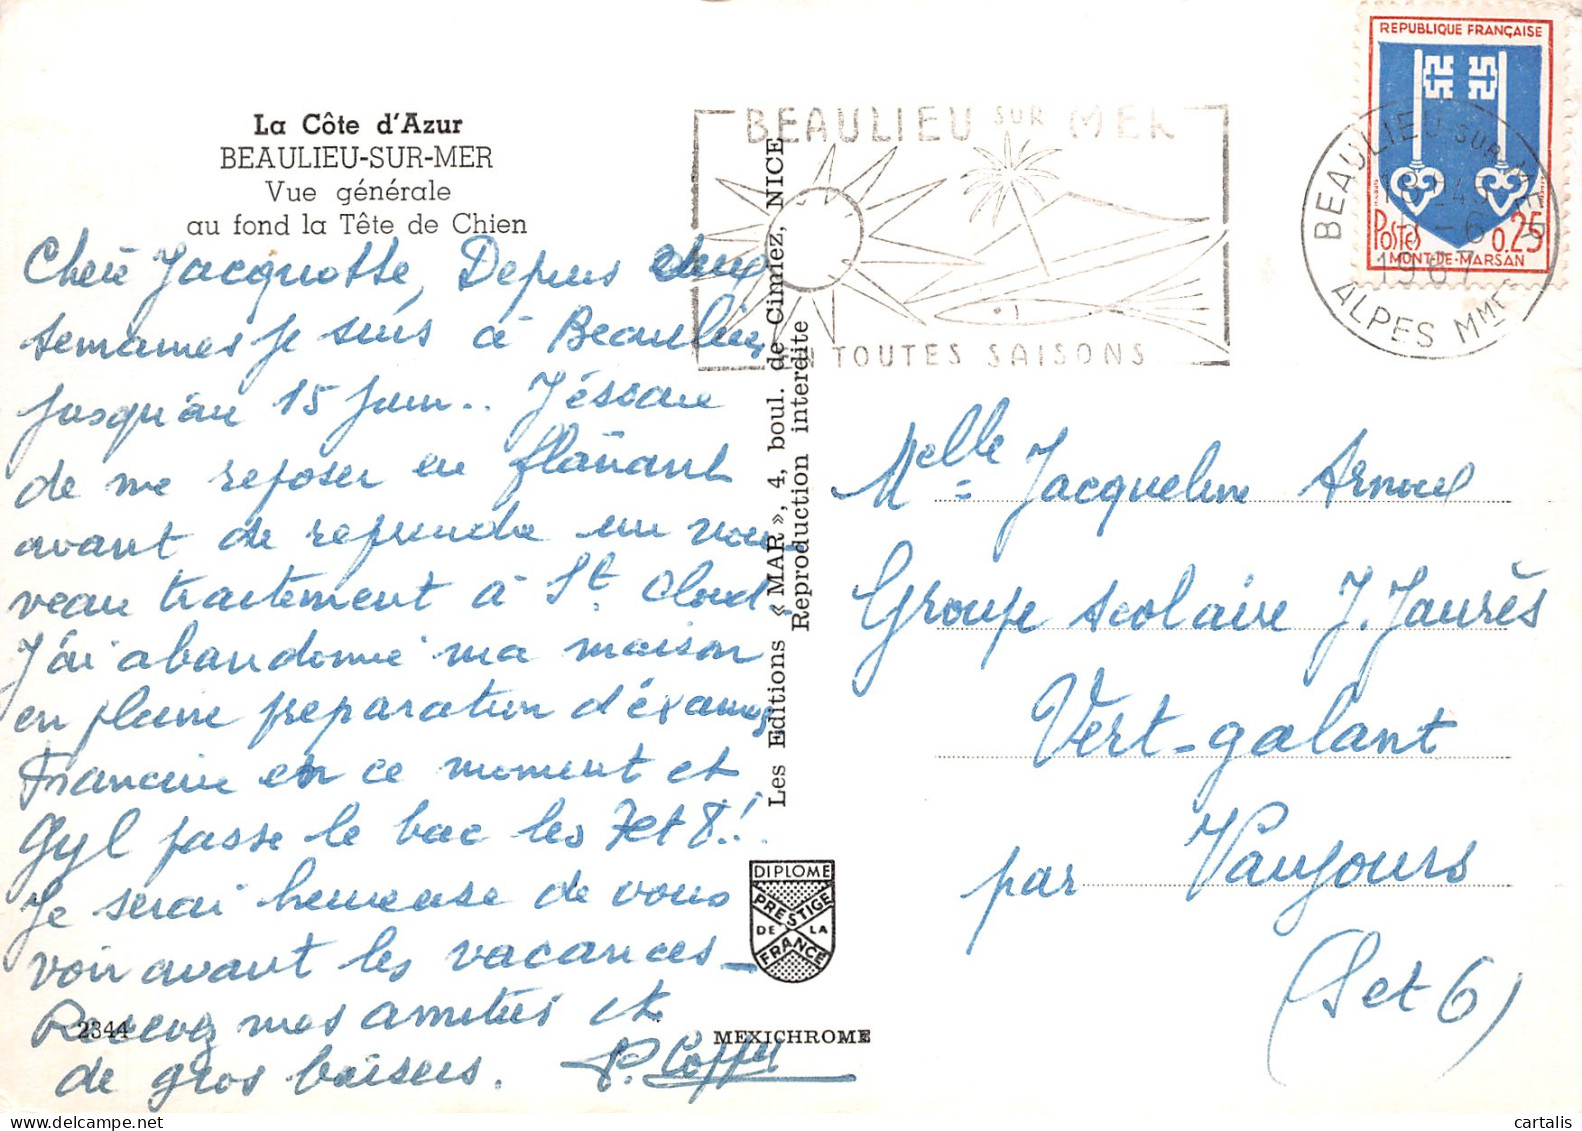 La Côte d'Azur
BEAULIEU-SUR-MER
Vue générale
au fond la Tête de Chien
Chère Jacquotte, Depuis cinq
semaines je suis à Beaulieu
jusqu'au 15 juin.. J'éssaie
de me reposer en flânant
avant de reprendre un nou-
veau traitement à St. Cloud_
J'ai abandonné ma maison
en pleine préparation d'éxamens
Francine en ce moment et
Gyl passe le bac les 7 et 8!.
Je serai heureuse de vous
voir avant les vacances_
Recevez mes amitiés et
de gros baisers. P. Coffy
2344
Les Editions « MAR », 4, boul. de Cimiez, NICE
Reproduction interdite
DIPLOME
PRESTIGE
DE LA
FRANCE
MEXICHROME
BEAULIEU SUR MER
EN TOUTES SAISONS
REPUBLIQUE FRANÇAISE
POSTES 0,25
MONT-DE-MARSAN
BEAULIEU SUR MER
18H45
-6
1967
ALPES MMES
Melle Jacqueline Arnoul
Groupe scolaire J. Jaurès
Vert-galant
par Vaujours
(Set 6)
cartalis